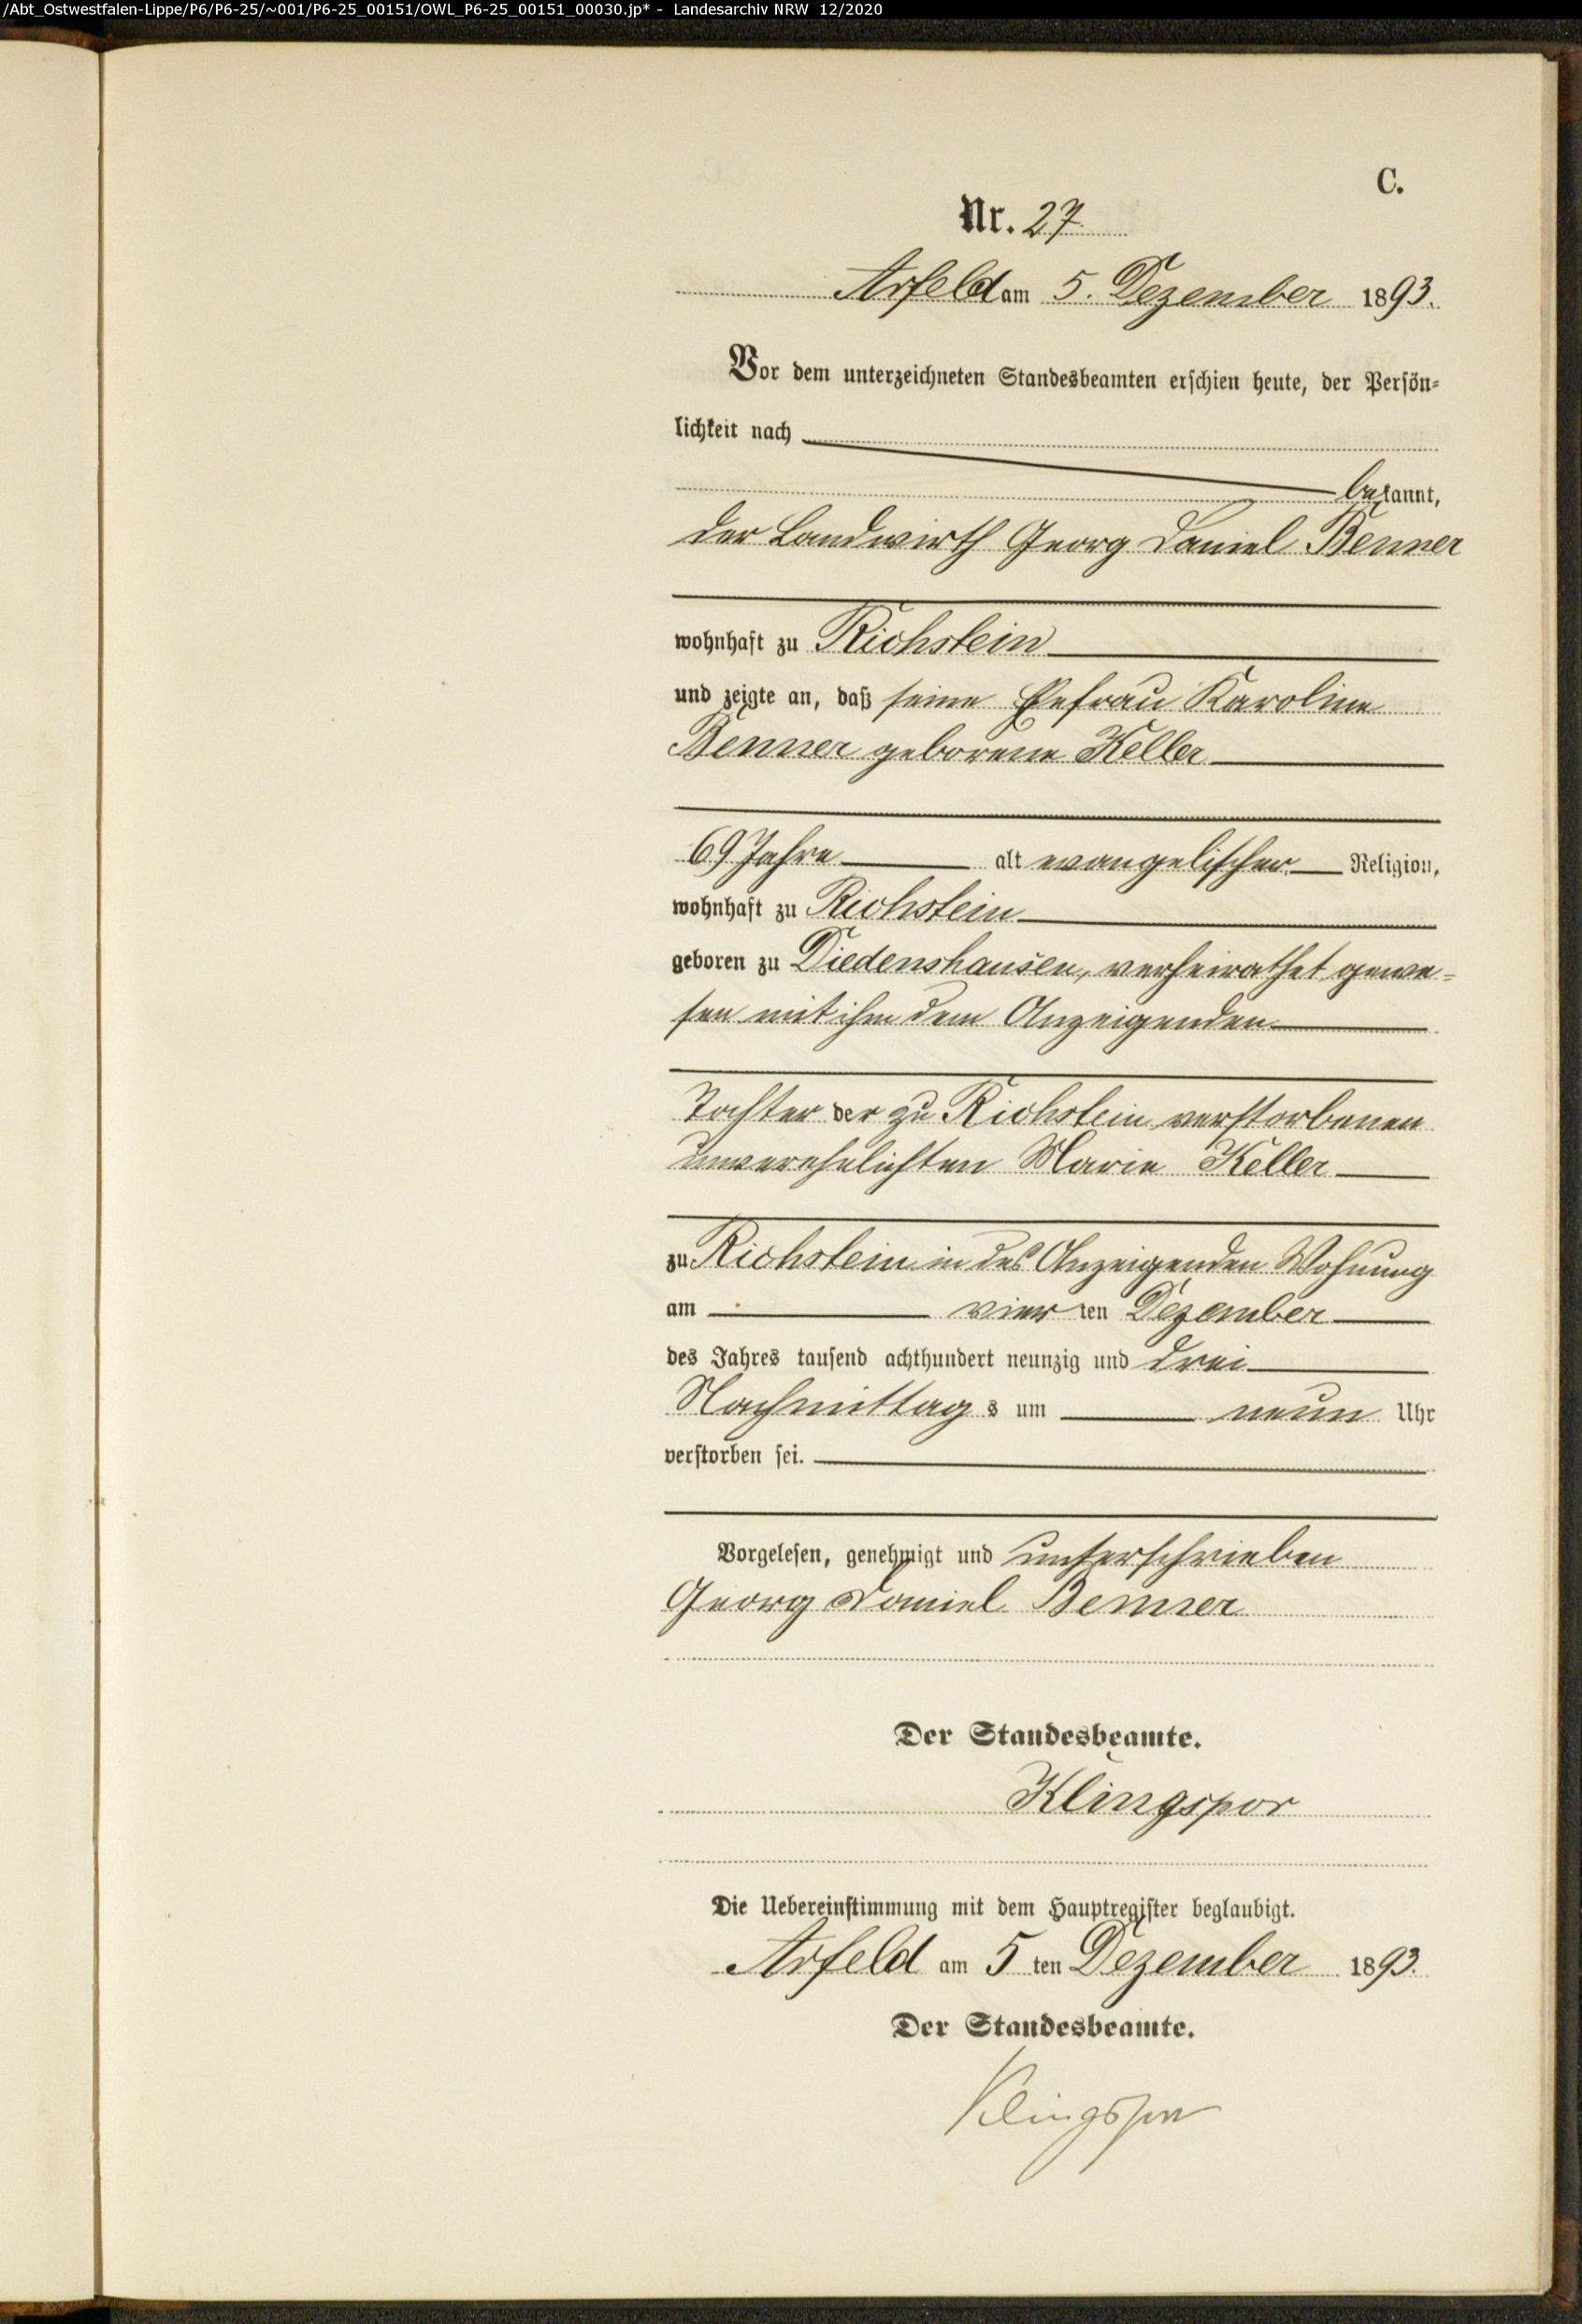 /Abt_Ostwestfalen-Lippe/P6/P6-25/~001/P6-25_00151/OWL_P6-25_00151_00030.jp* - Landesarchiv NRW 12/2020
C.
Nr. 27
Arfeld am 5. Dezember 1893.
Vor dem unterzeichneten Standesbeamten erschien heute, der Persön-
lichkeit nach
bekannt,
der Landwirth Georg Daniel Benner
wohnhaft zu Richstein
und zeigte an, daß seine Ehefrau Karoline
Benner geborene Keller
69 Jahre alt evangelischer Religion,
wohnhaft zu Richstein
geboren zu Diedenshausen, verheirathet gewe-
sen mit ihm dem Anzeigenden
Tochter der zu Richstein verstorbenen
unverehelichten Marie Keller
zu Richstein in des Anzeigenden Wohnung
am vier ten Dezember
des Jahres tausend achthundert neunzig und drei
Nachmittag s um neun Uhr
verstorben sei.
Vorgelesen, genehmigt und unterschrieben
Georg Daniel Benner
Der Standesbeamte.
Klingspor
Die Uebereinstimmung mit dem Hauptregister beglaubigt.
Arfeld am 5 ten Dezember 1893.
Der Standesbeamte.
Klingspor